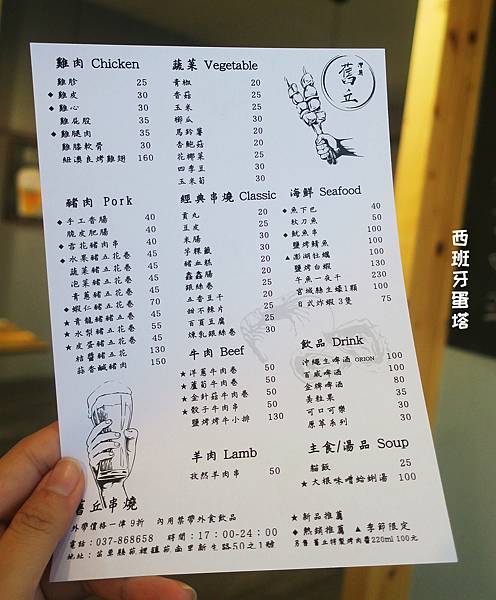 灣麗
舊丘
雞肉 Chicken
雞胗 25
◆雞皮 30
◆雞心 30
雞屁股 35
◆雞腿肉 35
雞膝軟骨 30
紐澳良烤雞翅 160
蔬菜 Vegetable
青椒 20
香菇 20
玉米 25
櫛瓜 30
馬鈴薯 20
杏鮑菇 20
花椰菜 25
四季豆 30
玉米筍 30
豬肉 Pork
◆手工香腸 40
脆皮肥腸 40
◆雪花豬肉串 40
◆水果豬五花卷 45
蔬菜豬五花卷 45
泡菜豬五花卷 45
青蔥豬五花卷 45
◆蝦仁豬五花卷 70
★青龍豬豬五花卷 55
★水梨豬五花卷 55
★皮蛋豬五花卷 45
桔醬豬五花 130
蒜香鹹豬肉 150
經典串燒 Classic
貢丸 20
豆皮 25
米腸 30
芋粿籤 30
豬血糕 20
鑫鑫腸 20
銀絲卷 25
五香豆干 20
甜不辣片 25
百頁豆腐 25
煉乳銀絲卷 30
海鮮 Seafood
◆魚下巴 40
秋刀魚 50
◆魷魚串 100
鹽烤鯖魚 100
▲澎湖牡蠣 100
鹽烤白蝦 130
午魚一夜干 230
宮城縣生蠔1顆 100
日式炸蝦3隻 75
牛肉 Beef
★洋蔥牛肉卷 50
★蘆筍牛肉卷 50
★金針菇牛肉卷 50
★骰子牛肉串 50
鹽烤烤牛小排 130
飲品 Drink
沖繩生啤酒 ORION 100
百威啤酒 100
金牌啤酒 80
黃粒果 35
可口可樂 30
原萃系列 30
羊肉 Lamb
孜然羊肉串 50
主食/湯品 Soup
貓飯 25
★大根味噌蛤蜊湯 50
舊丘串燒
外帶價格一律9折 內用禁帶外食飲品
電話：037-868658 時間：17：00-24：00
地址：苗栗縣苑裡鎮苑南里新生路50之1號
★新品推薦
◆熱銷推薦 ▲季節限定
另售 舊丘特製烤肉醬220ml 100元
西班牙蛋塔